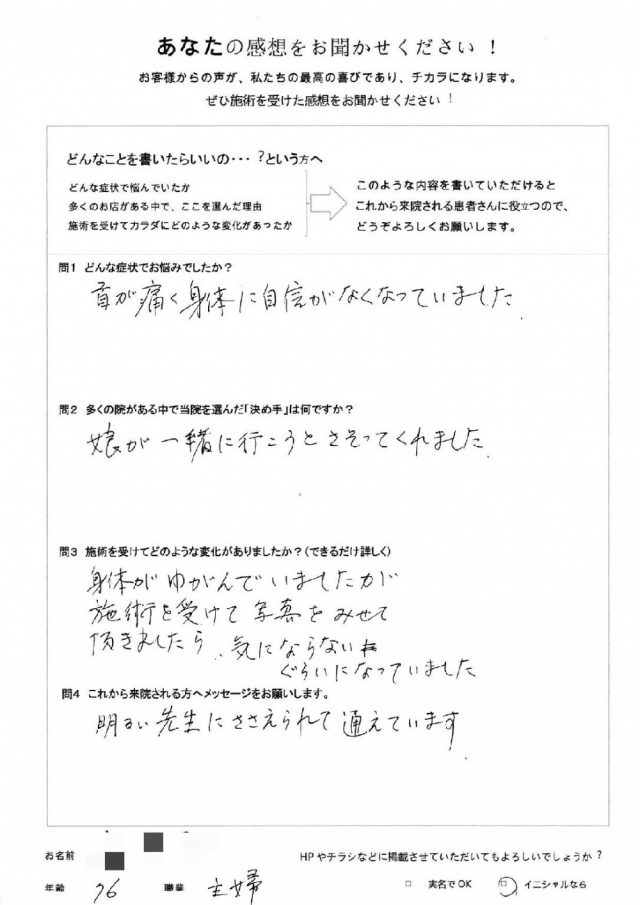 あなたの感想をお聞かせください！
お客様からの声が、私たちの最高の喜びであり、チカラになります。
ぜひ施術を受けた感想をお聞かせください！
どんなことを書いたらいいの・・・？という方へ
どんな症状で悩んでいたか
多くのお店がある中で、ここを選んだ理由
施術を受けてカラダにどのような変化があったか
このような内容を書いていただけると
これから来院される患者さんに役立つので、
どうぞよろしくお願いします。
問1 どんな症状でお悩みでしたか？
首が痛く身体に自信がなくなっていました。
問2 多くの院がある中で当院を選んだ「決め手」は何ですか？
娘が一緒に行こうとさそってくれました。
問3 施術を受けてどのような変化がありましたか？（できるだけ詳しく）
身体がゆがんでいましたが
施術を受けて写真をみせて
頂きましたら、気にならない
ぐらいになっていました
問4 これから来院される方へメッセージをお願いします。
明るい先生にささえられて通えています。
お名前
HPやチラシなどに掲載させていただいてもよろしいでしょうか？
年齢 76 職業 主婦 □ 実名でOK □ イニシャルなら